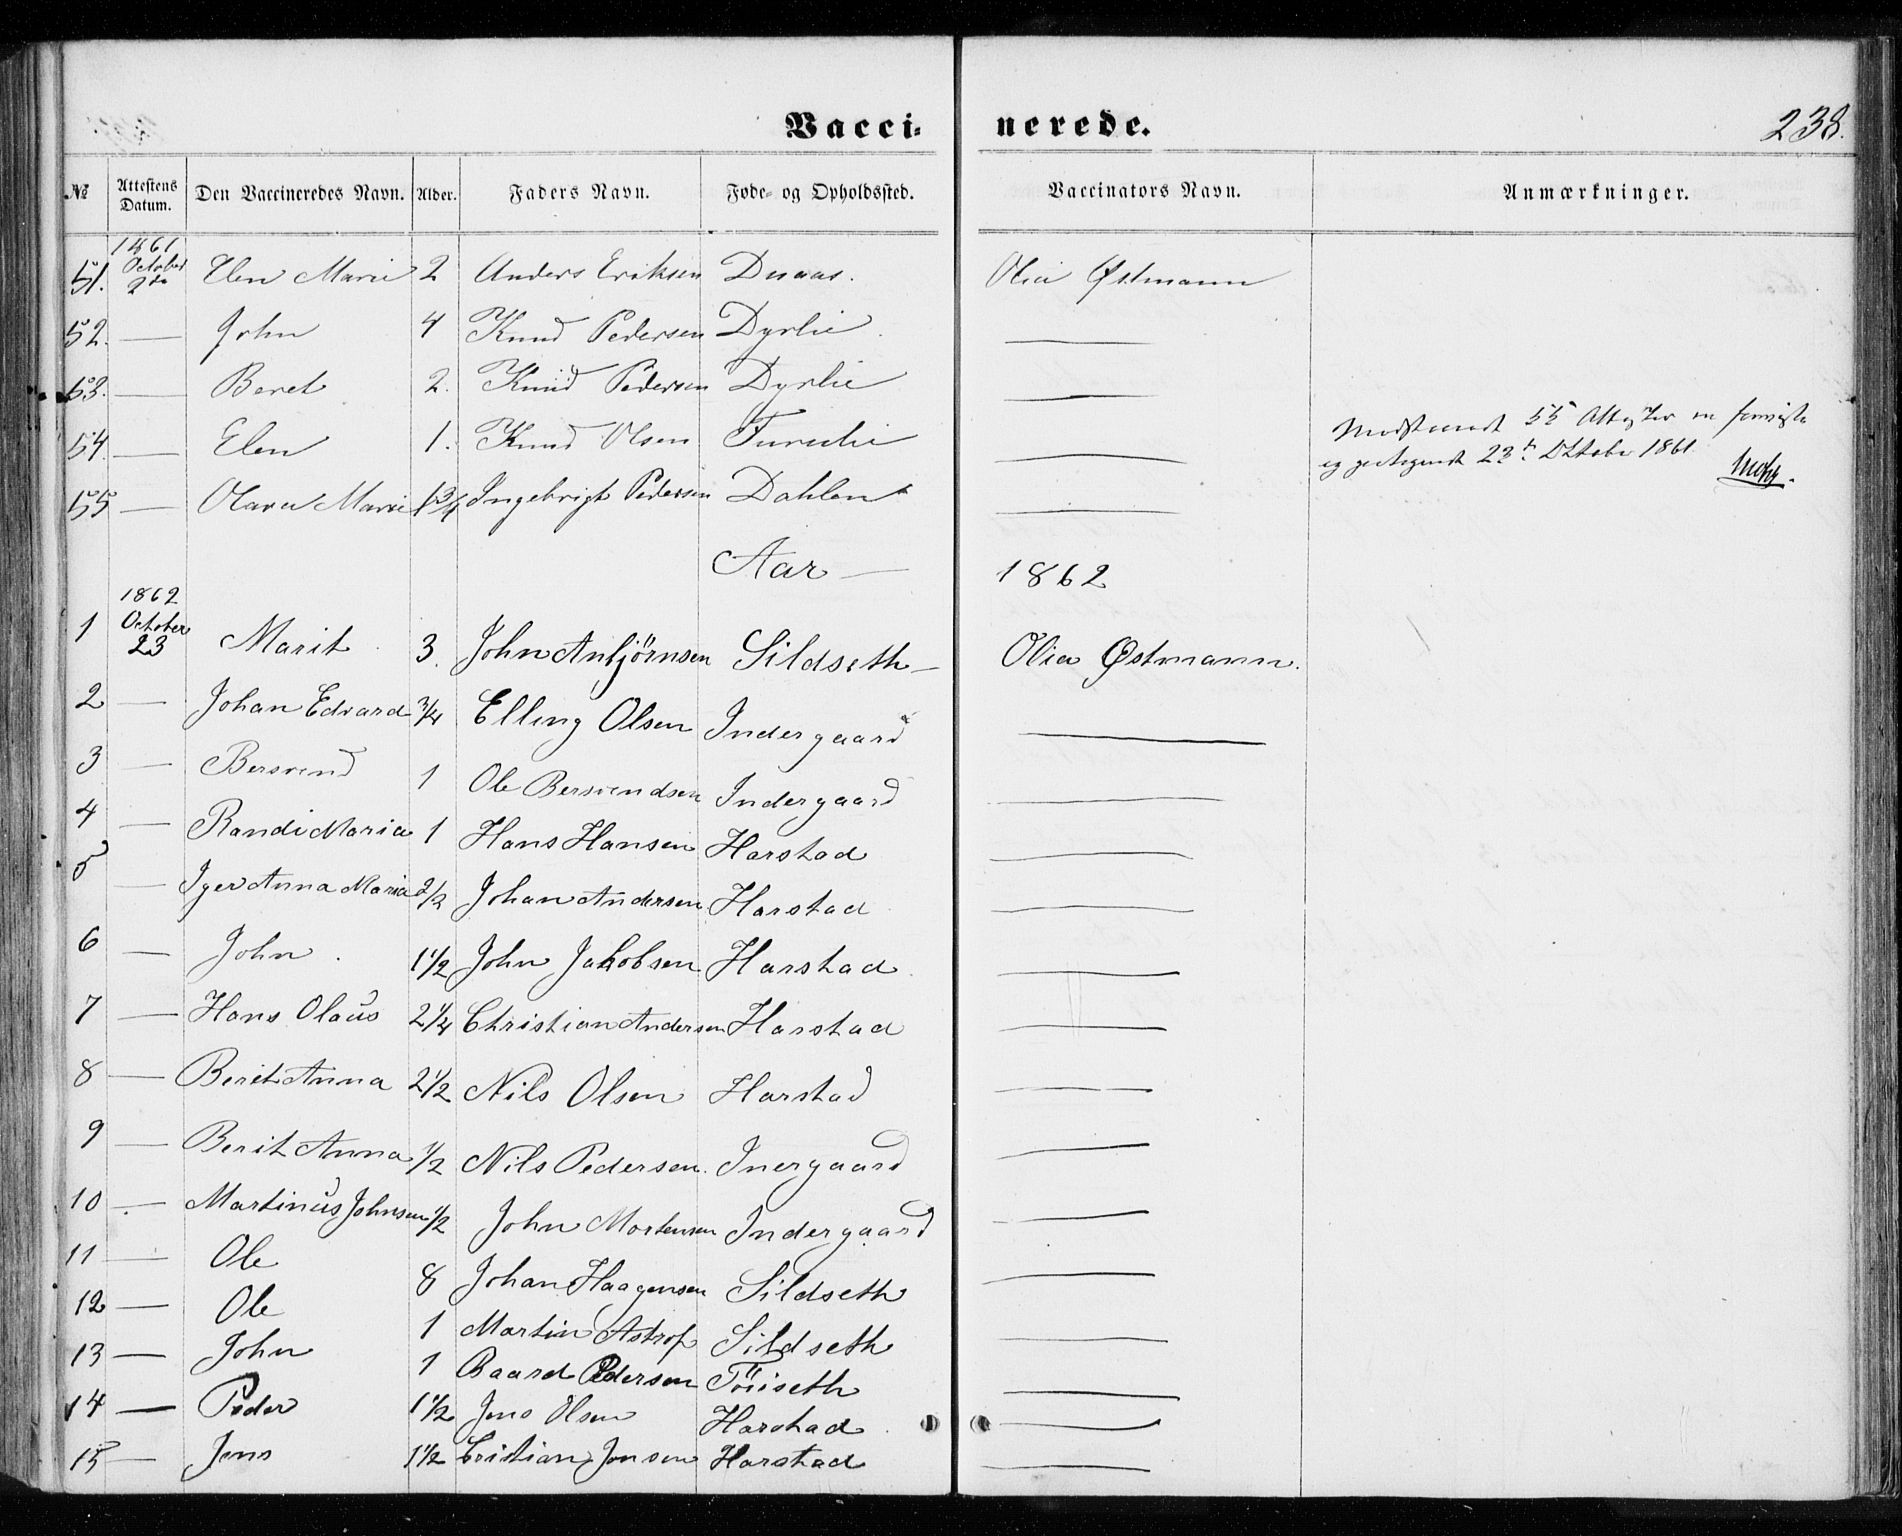 Vaccinerede.
238.
№ Attestens Datum. Den Vaccineredes Navn. Alder. Faders Navn. Føde- og Opholdssted. Vaccinators Navn. Anmærkninger.
51. 1861 October 2de Elen Marie 2 Anders Eriksen Duaas. Olia Østmann
52. — John 4 Knud Pedersen Dyrlie. —
53. — Beret 2. Knud Pedersen Dyrlie —
54. — Elen 1. Knud Olsen —
55 — Olava Marie 1 3/4 Ingebrigt Pedersen Dahlen —
55 Attester
23de Oktober 1861.
Aar — 1862
1 1862 October 23 Marit 3. John Anbjörnsen Sildseth — Olia Østmann.
2 — Johan Edvard 3/4 Elling Olsen Indergaard —
3 — Bersvend 1 Ole Bersvendsen Indergaard —
4 — Randi Maria 1 Hans Hansen Harstad —
5 — Iger Anna Maria 2/2 Johan Andersen Harstad —
6 — John. 1 1/2 John Jakobsen Harstad —
7 — Hans Olaus 2 1/4 Christian Andersen Harstad —
8 — Berit Anna 2 1/2 Nils Olsen Harstad —
9 — Berit Anna 1/2 Nils Pedersen. Inergaard —
10 — Martinus Johnsen 1/2 John Mortensen Indergaard —
11 — Ole 8 Johan Haagensen Sildseth —
12 — Ole 1 Martin Astrop Sildseth —
13 — John 1 Baard Pedersen Töriseth —
14 — Peder 1 1/2 Jens Olsen Harstad —
15 — Jens 1 1/2 Cristian Jonsen Harstad —